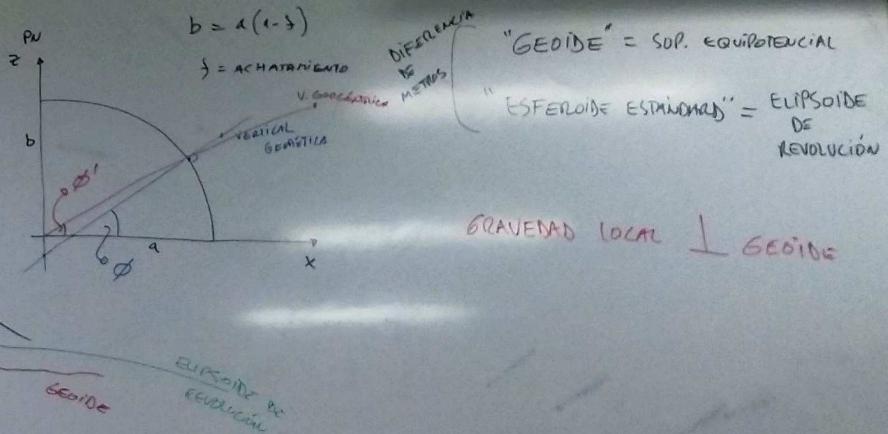 PN
Z
b = a(1-f)
f = ACHATAMIENTO
V. GEOCÉNTRICA
VERTICAL
GEODÉTICA
b
Ø'
Ø
a
X
DIFERENCIA
DE
METROS
"GEOIDE" = SUP. EQUIPOTENCIAL
"ESFEROIDE ESTANDARD" = ELIPSOIDE
DE
REVOLUCIÓN
GRAVEDAD LOCAL ⊥ GEOIDE
ELIPSOIDE DE
REVOLUCIÓN
GEOIDE